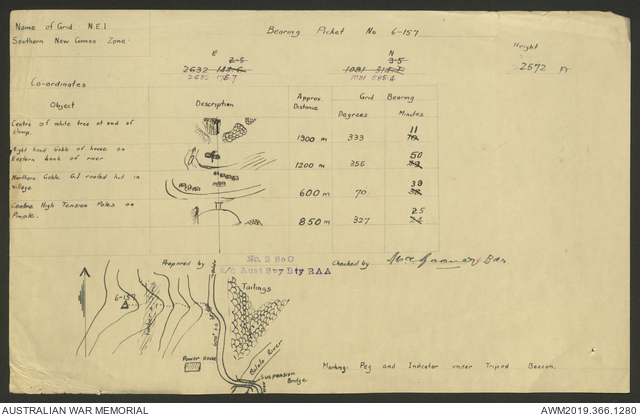 Name of Grid N.E.I
Southern New Guinea Zone.
Bearing Picket No 6-157
Height
2572 FT
E
N
2632
1081
2632 175.7
1081 585.4
Co-ordinates
Object
Description
Approx. Distance
Grid Bearing
Degrees
Minutes
Centre of white tree at end of clump.
1900 m
333
11
Right hand Gable of house on Eastern bank of river
1200 m
355
50
Northern Gable G.I roofed hut in village
600 m
70
Centre High Tension Poles on Pimple.
850 m
327
25
Prepared by
No. 2 Sec
2/6 Aust Svy Bty RAA
Checked by
Bdr
6-157
Tailings
Power House
Bulolo River
Suspension Bridge
Marking: Peg and Indicator under Tripod Beacon.
AUSTRALIAN WAR MEMORIAL
AWM2019.366.1280